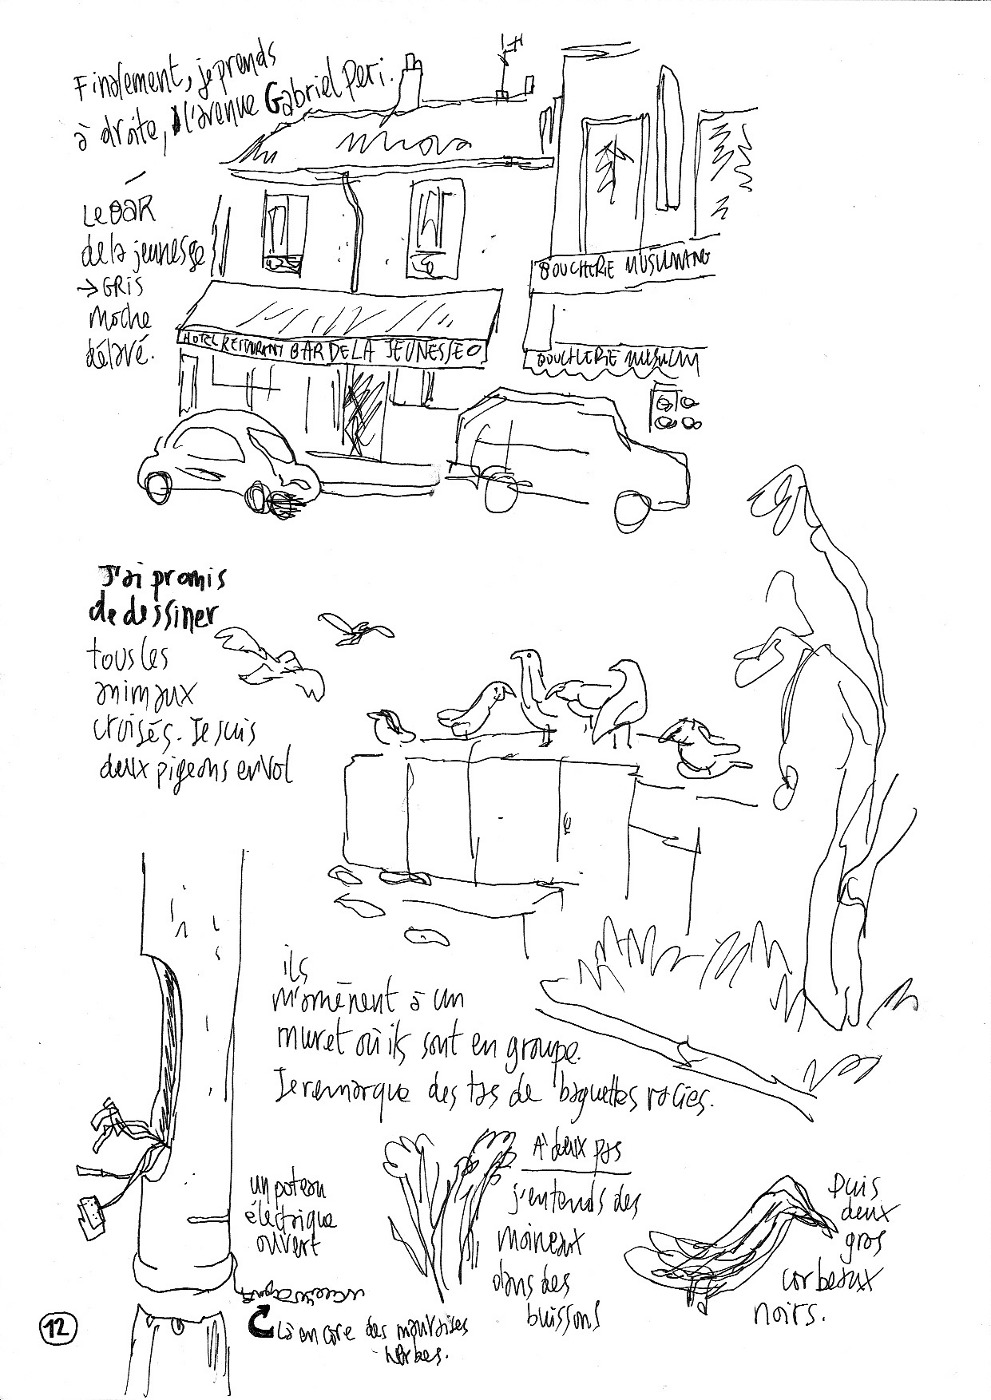 Finalement, je prends
à droite, l'avenue Gabriel Peri.
Le BAR
de la jeunesse
→ GRIS
moche
délavé.
BOUCHERIE MUSULMANE
HOTEL RESTAURANT BAR DE LA JEUNESSE
BOUCHERIE MUSULM
J'ai promis
de dessiner
tous les
animaux
croisés. Je suis
deux pigeons en vol
ils
m'amènent à un
muret où ils sont en groupe.
Je remarque des tas de baguettes rassies.
un poteau
électrique
ouvert
À deux pas
j'entends des
moineaux
dans des
buissons
Puis
deux
gros
corbeaux
noirs.
Là encore des mauvaises
herbes.
12